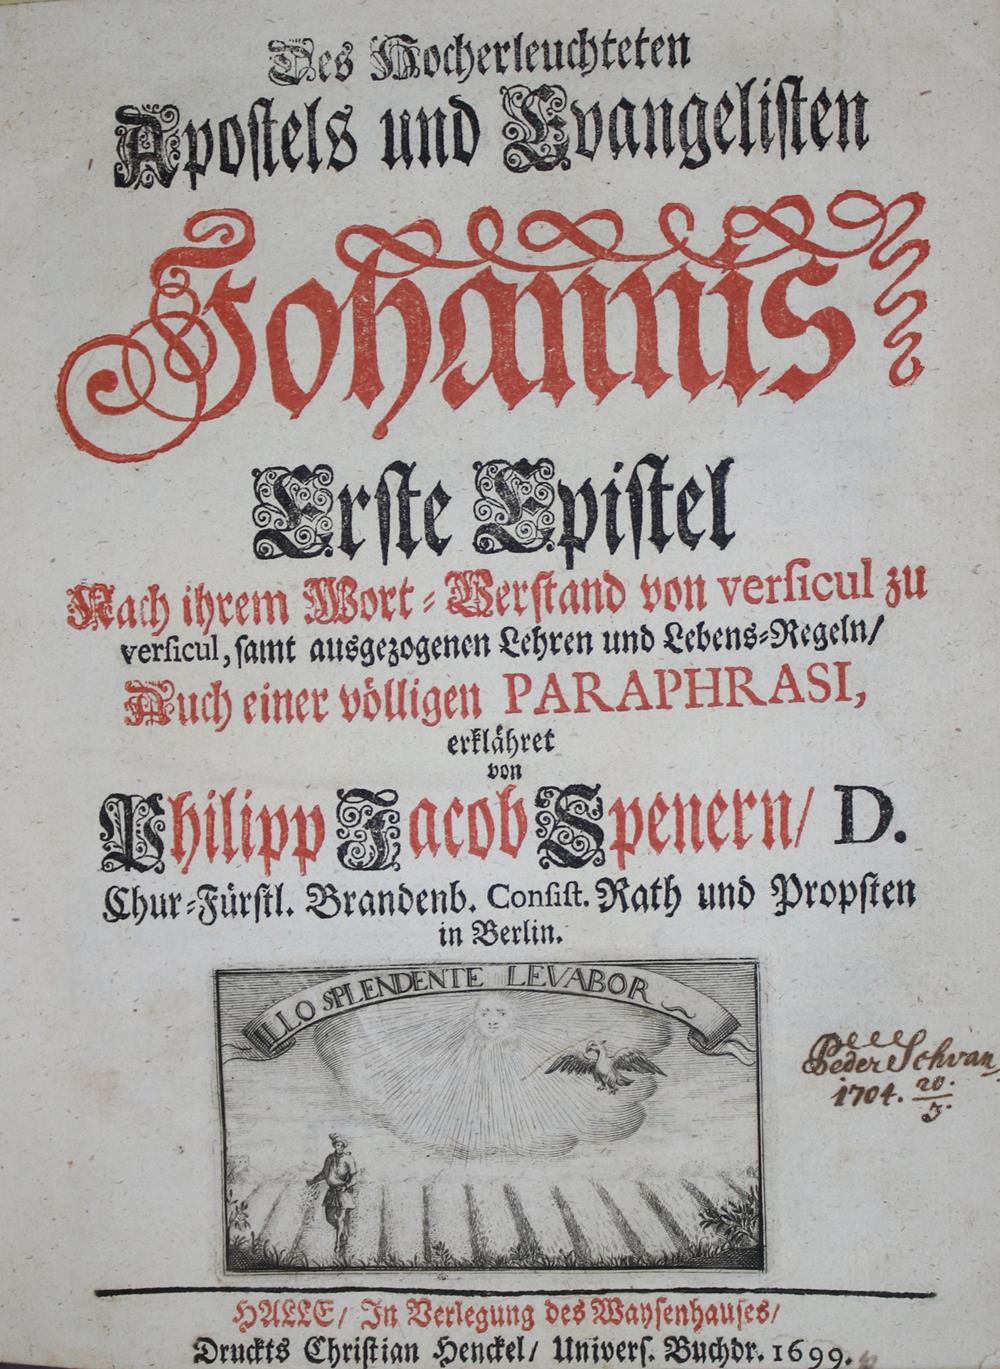 Des Hocherleuchteten
Apoſtels und Evangeliſten
Johannis
Erſte Epiſtel
Nach ihrem Wort-Verſtand von verſicul zu
verſicul, ſamt ausgezogenen Lehren und Lebens-Regeln/
Auch einer völligen PARAPHRASI,
erklåhret
von
Philipp Jacob Spenern/ D.
Chur-Fürſtl. Brandenb. Conſiſt. Rath und Propſten
in Berlin.
ILLO SPLENDENTE LEVABOR
Peder Schvan
1704. 20.
3.
HALLE/ In Verlegung des Wayſenhauſes/
Druckts Chriſtian Henckel/ Univerſ. Buchdr. 1699.